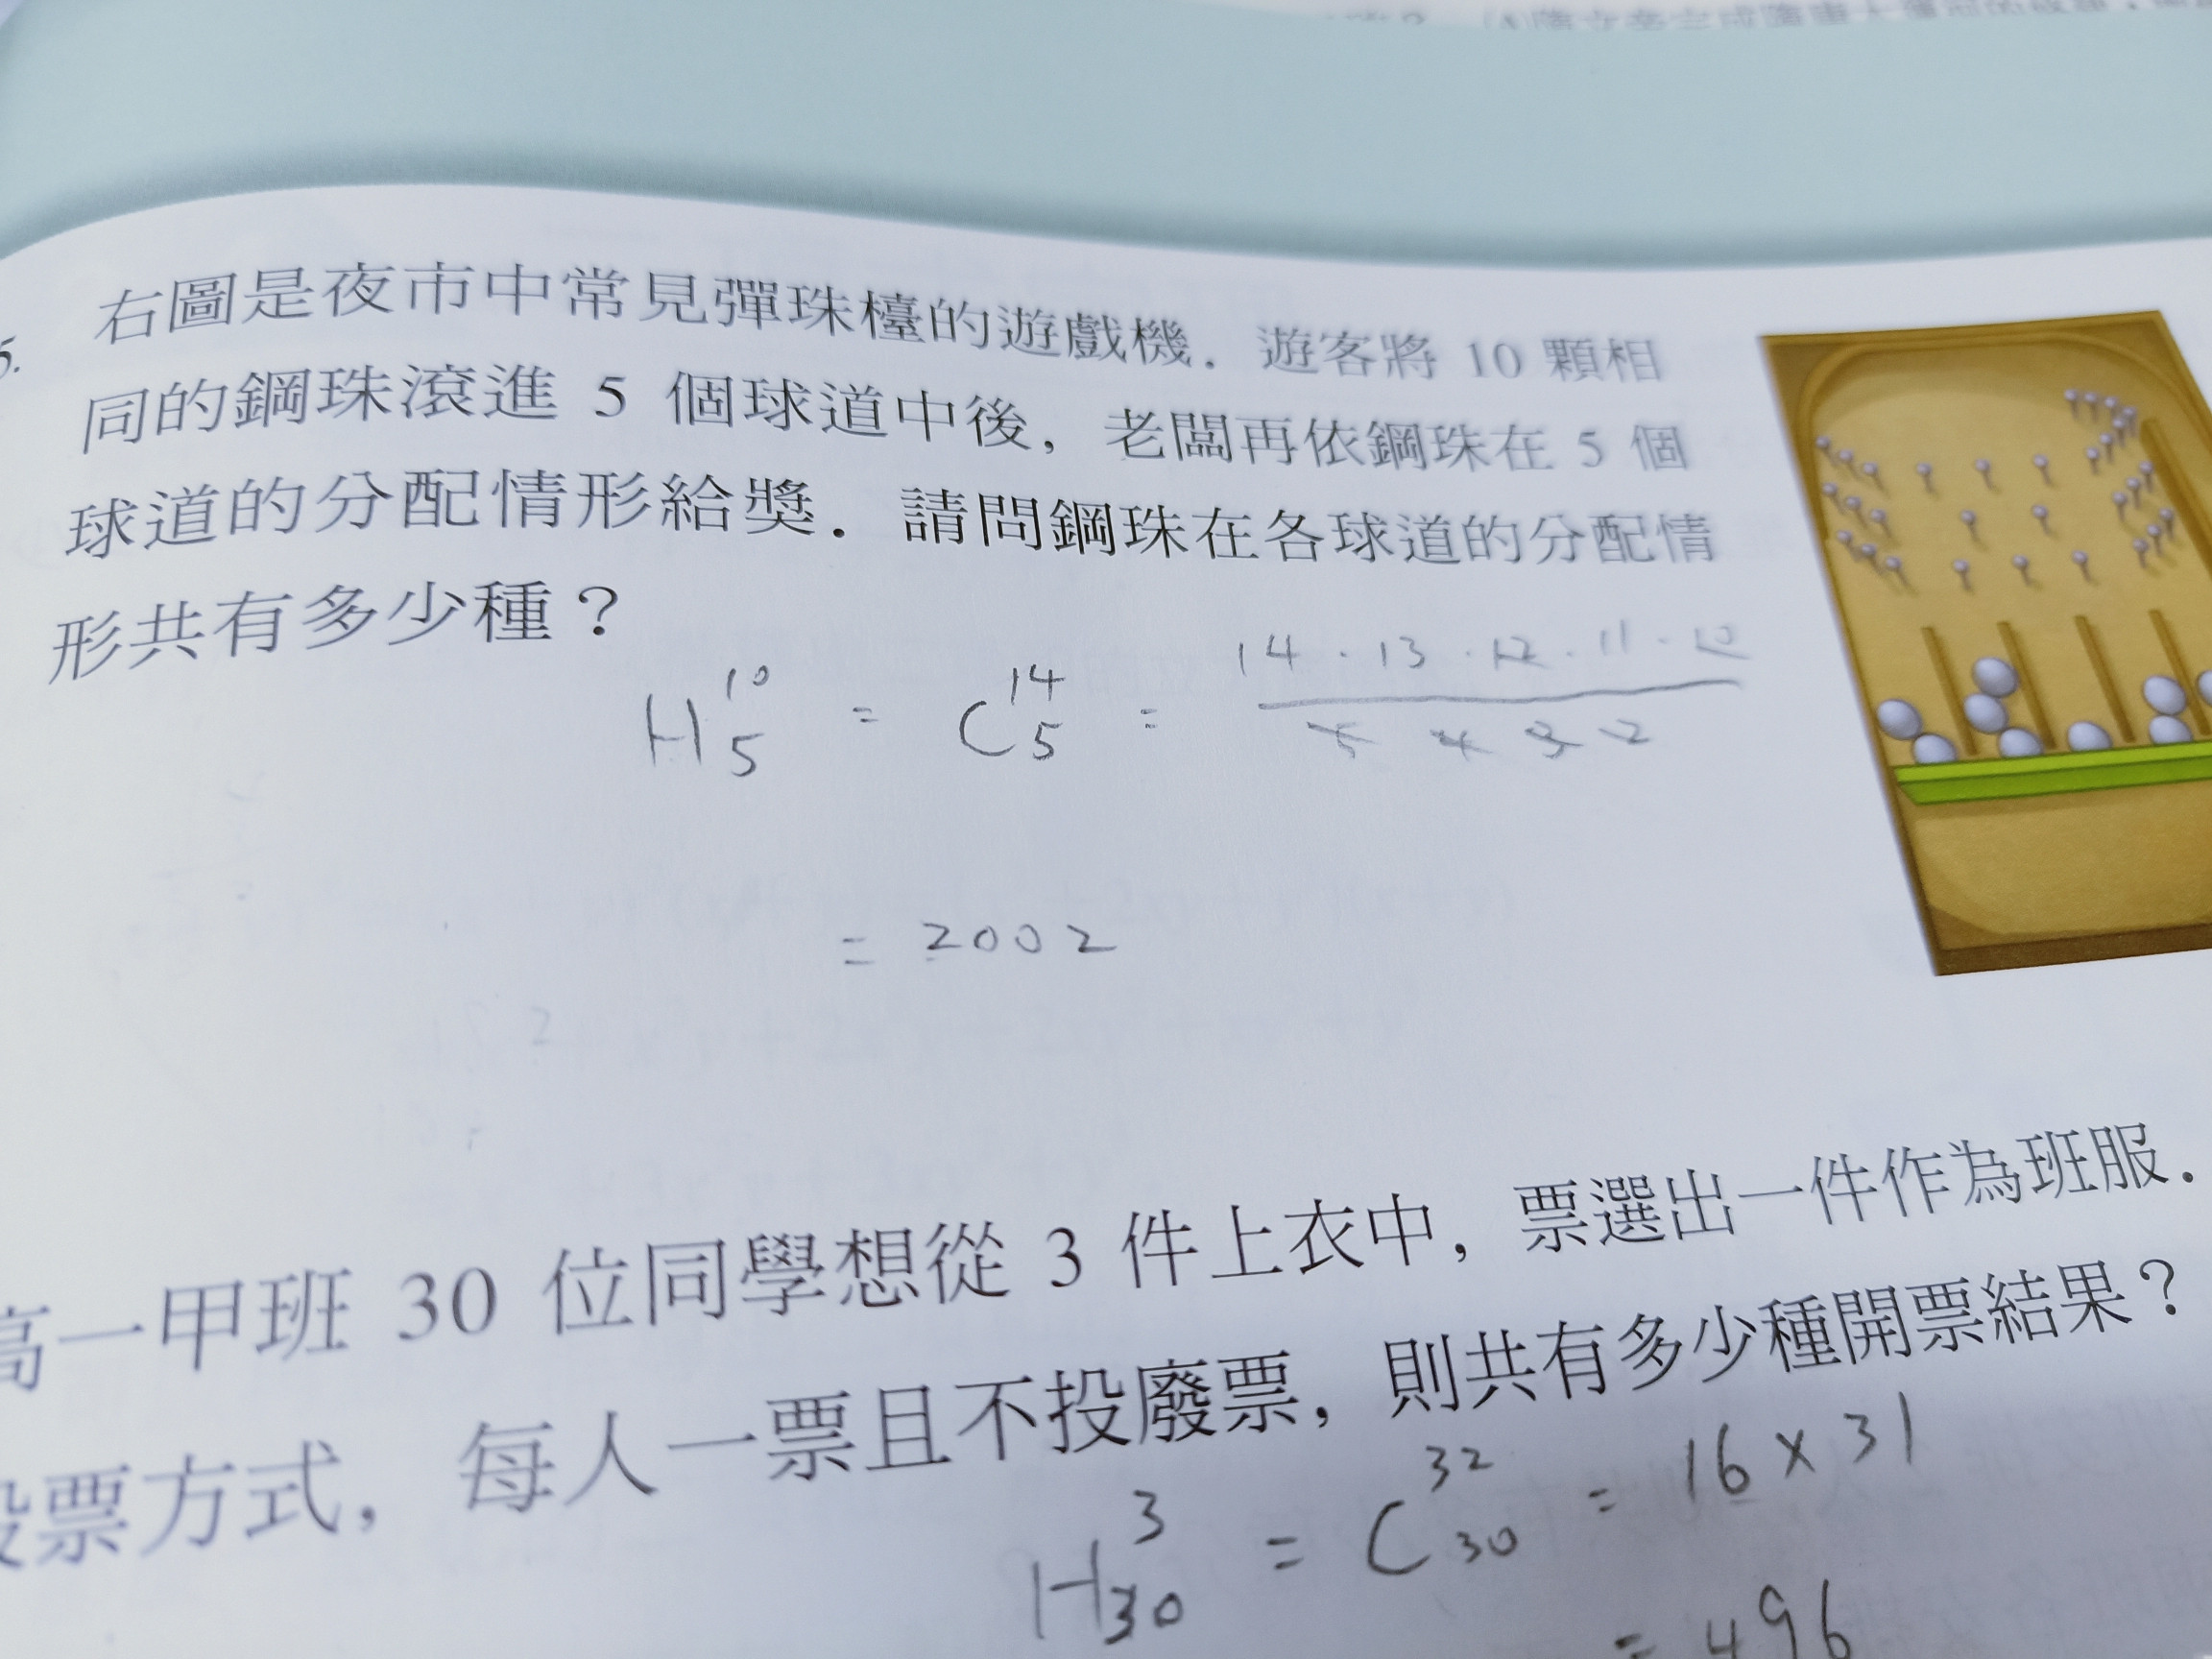 5.
右圖是夜市中常見彈珠檯的遊戲機．遊客將 10 顆相
同的鋼珠滾進 5 個球道中後，老闆再依鋼珠在 5 個
球道的分配情形給獎．請問鋼珠在各球道的分配情
形共有多少種？
H¹⁰₅ = C¹⁴₅ = 14 · 13 · 12 · 11 · 10 / 5 4 3 2
= 2002
高一甲班 30 位同學想從 3 件上衣中，票選出一件作為班服．
投票方式，每人一票且不投廢票，則共有多少種開票結果？
H³₃₀ = C³²₃₀ = 16 × 31
= 496